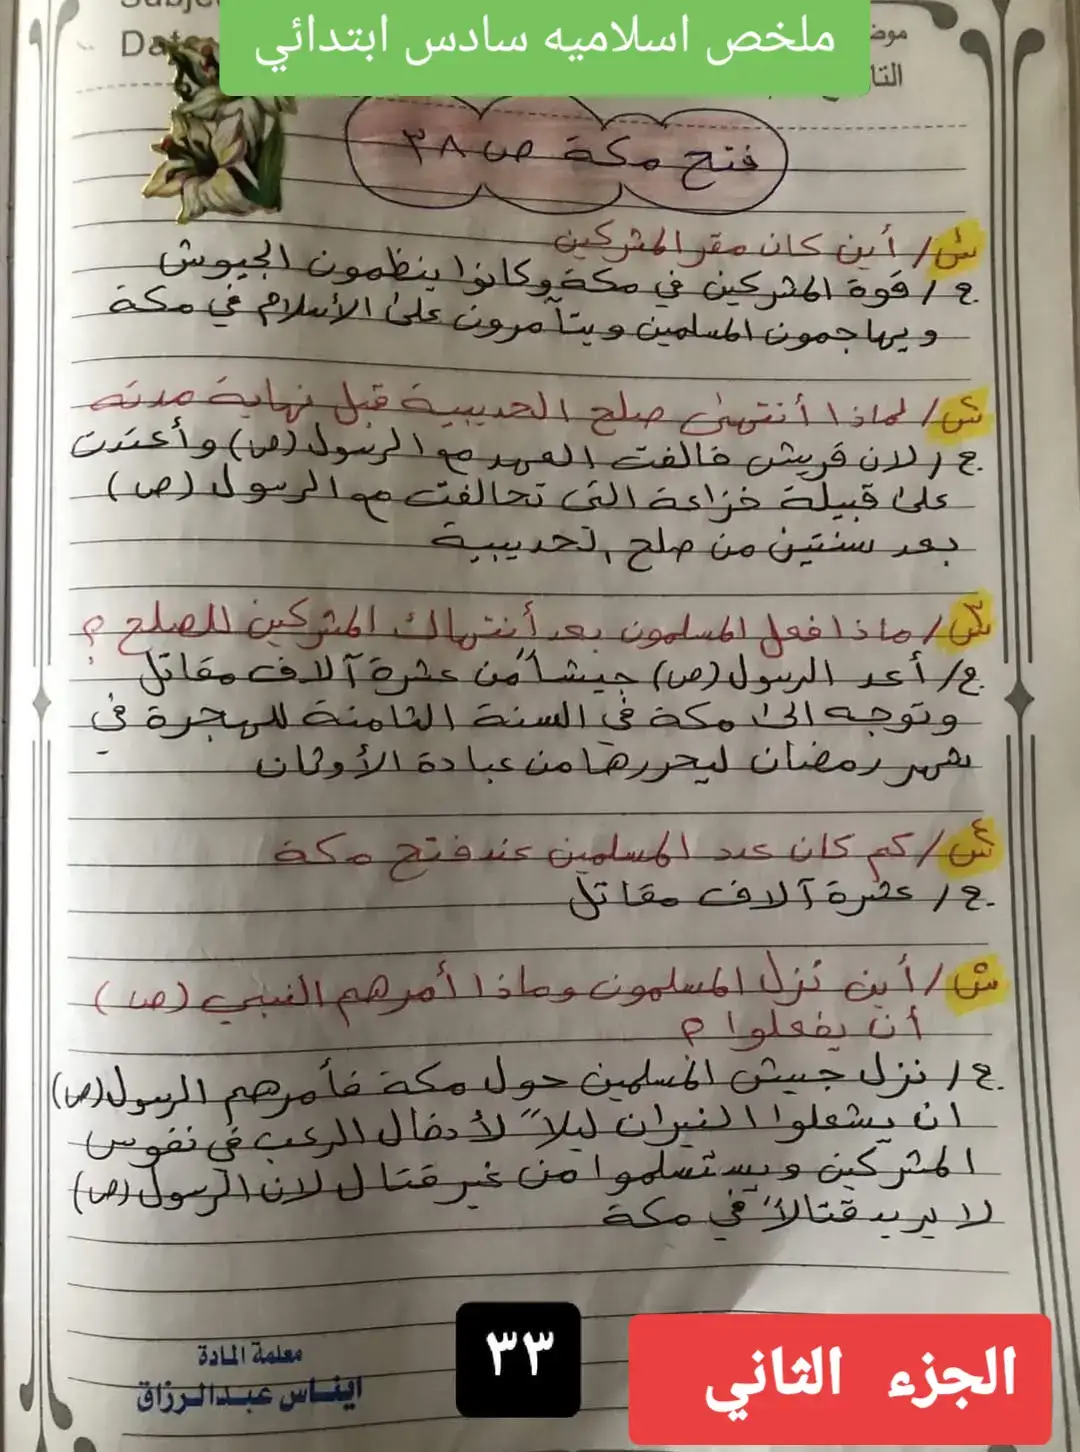 ملخص اسلاميه سادس ابتدائي
Date
التا
فتح مكة ص ٣٨
س١/ أين كان مقر المشركين
ج/ قوة المشركين في مكة وكانوا ينظمون الجيوش
ويهاجمون المسلمين ويتآمرون على الأسلام في مكة
س٢/ لماذا أنتهى صلح الحديبية قبل نهاية مدته
ج/ لان قريش خالفت العهد مع الرسول (ص) وأعتدت
على قبيلة خزاعة التي تحالفت مع الرسول (ص)
بعد سنتين من صلح الحديبية
س٣/ ماذا فعل المسلمون بعد أنتهاك المشركين للصلح ؟
ج/ أعد الرسول (ص) جيشاً من عشرة آلاف مقاتل
وتوجه الى مكة في السنة الثامنة للهجرة في
شهر رمضان ليحررها من عبادة الأوثان
س٤/ كم كان عدد المسلمين عند فتح مكة
ج/ عشرة آلاف مقاتل
س٥/ أين نزل المسلمون وماذا أمرهم النبي (ص)
أن يفعلوا ؟
ج/ نزل جيش المسلمين حول مكة فأمرهم الرسول (ص)
ان يشعلوا النيران ليلاً لأدخال الرعب في نفوس
المشركين ويستسلموا من غير قتال لان الرسول (ص)
لا يريد قتالاً في مكة
معلمة المادة
ايناس عبدالرزاق
٣٣
الجزء الثاني